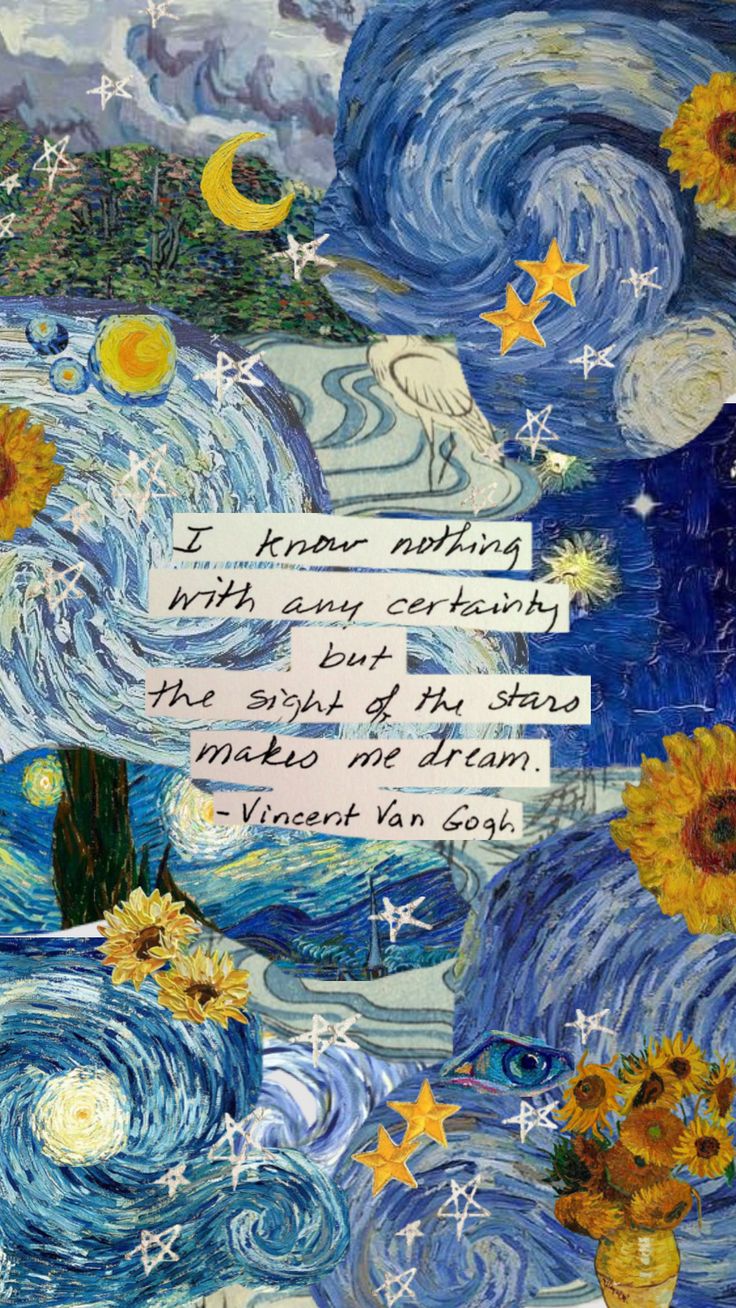 I know nothing
with any certainty
but
the sight of the stars
makes me dream.
-Vincent Van Gogh